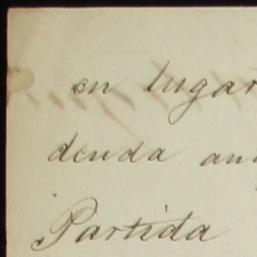 en lugar
deuda an
Partida